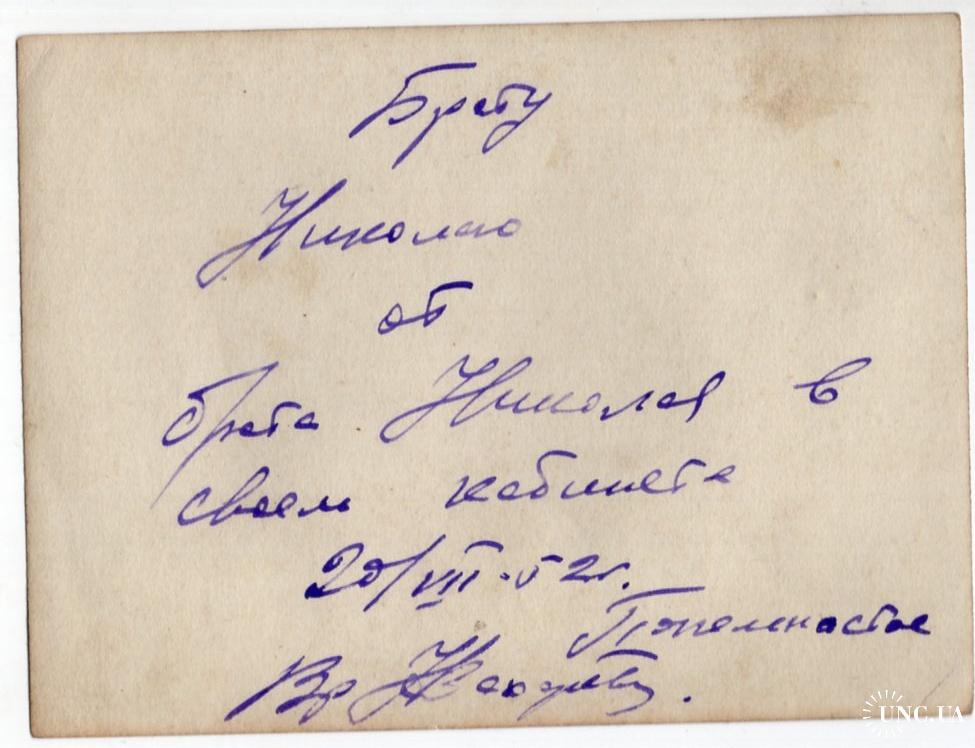 Брату
Николаю
от
брата Николая в
своем кабинете
20/VII-52г.
Вр
UNC.UA